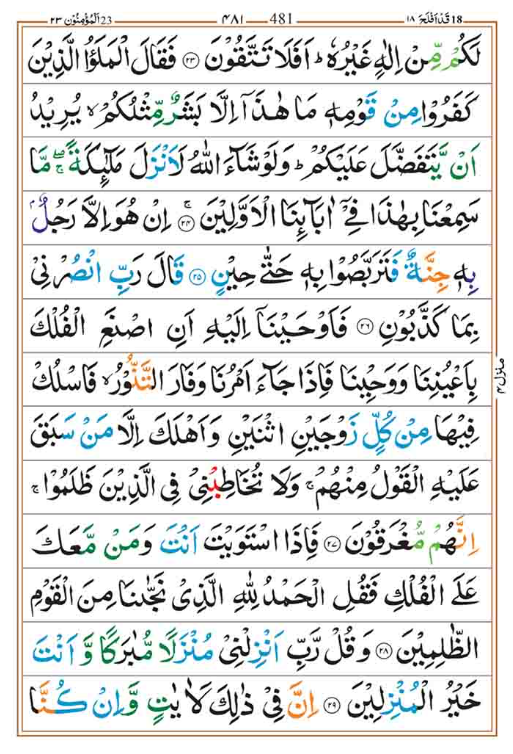 18 قد افلح ١٨ 481 ٤٨١ 23 المؤمنون ٢٣
لَكُمْ مِّنْ اِلٰهٍ غَيْرُهٗ ؕ اَفَلَا تَتَّقُوْنَ ﴿۲۳﴾ فَقَالَ الْمَلَؤُا الَّذِيْنَ
كَفَرُوْا مِنْ قَوْمِهٖ مَا هٰذَاۤ اِلَّا بَشَرٌ مِّثْلُكُمْ ۙ يُرِيْدُ
اَنْ يَّتَفَضَّلَ عَلَيْكُمْ ؕ وَلَوْ شَآءَ اللّٰهُ لَاَنْزَلَ مَلٰٓئِكَةً ۖۚ مَّا
سَمِعْنَا بِهٰذَا فِيْۤ اٰبَآئِنَا الْاَوَّلِيْنَ ﴿۲۴﴾ۚ اِنْ هُوَ اِلَّا رَجُلٌۢ
بِهٖ جِنَّةٌ فَتَرَبَّصُوْا بِهٖ حَتّٰى حِيْنٍ ﴿۲۵﴾ قَالَ رَبِّ انْصُرْنِيْ
بِمَا كَذَّبُوْنِ ﴿۲۶﴾ فَاَوْحَيْنَاۤ اِلَيْهِ اَنِ اصْنَعِ الْفُلْكَ
بِاَعْيُنِنَا وَوَحْيِنَا فَاِذَا جَآءَ اَمْرُنَا وَفَارَ التَّنُّوْرُ ۙ فَاسْلُكْ
فِيْهَا مِنْ كُلٍّ زَوْجَيْنِ اثْنَيْنِ وَاَهْلَكَ اِلَّا مَنْ سَبَقَ
عَلَيْهِ الْقَوْلُ مِنْهُمْ ۚ وَلَا تُخَاطِبْنِيْ فِي الَّذِيْنَ ظَلَمُوْا ۚ
اِنَّهُمْ مُّغْرَقُوْنَ ﴿۲۷﴾ فَاِذَا اسْتَوَيْتَ اَنْتَ وَمَنْ مَّعَكَ
عَلَى الْفُلْكِ فَقُلِ الْحَمْدُ لِلّٰهِ الَّذِيْ نَجّٰىنَا مِنَ الْقَوْمِ
الظّٰلِمِيْنَ ﴿۲۸﴾ وَقُلْ رَّبِّ اَنْزِلْنِيْ مُنْزَلًا مُّبٰرَكًا وَّاَنْتَ
خَيْرُ الْمُنْزِلِيْنَ ﴿۲۹﴾ اِنَّ فِيْ ذٰلِكَ لَاٰيٰتٍ وَّاِنْ كُنَّا
منزل ۴